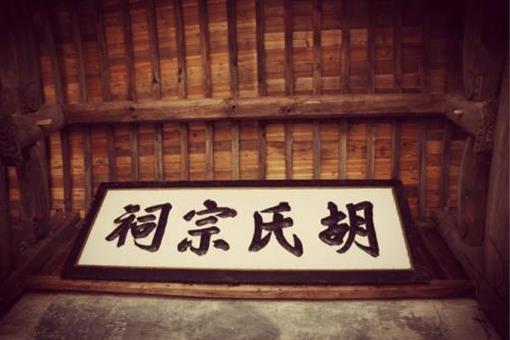 胡氏宗祠